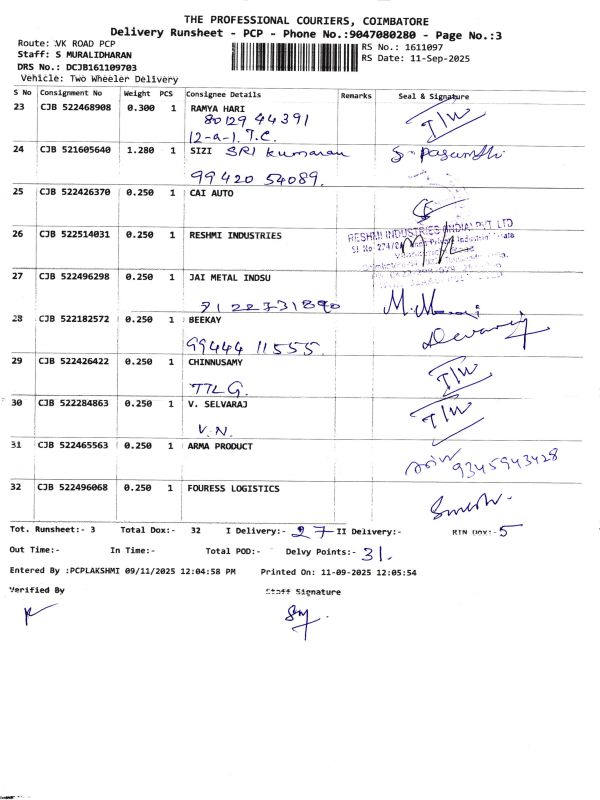 THE PROFESSIONAL COURIERS, COIMBATORE
Delivery Runsheet - PCP - Phone No.:9047080280 - Page No.:3
Route: VK ROAD PCP
RS No.: 1611097
Staff: S MURALIDHARAN
RS Date: 11-Sep-2025
DRS No.: DCJB161109703
Vehicle: Two Wheeler Delivery
S No Consignment No Weight PCS Consignee Details Remarks Seal & Signature
23 CJB 522468908 0.300 1 RAMYA HARI
80129 44391 T/W
12-a-1. T.C.
24 CJB 521605640 1.280 1 SIZI SRI Kumaran
99420 54089.
25 CJB 522426370 0.250 1 CAI AUTO
26 CJB 522514031 0.250 1 RESHMI INDUSTRIES RESHMI INDUSTRIES (INDIA) PVT LTD
27 CJB 522496298 0.250 1 JAI METAL INDSU
91 22731890
28 CJB 522182572 0.250 1 BEEKAY
99444 11555.
29 CJB 522426422 0.250 1 CHINNUSAMY T/W
TTL G.
30 CJB 522284863 0.250 1 V. SELVARAJ T/W
V.N.
31 CJB 522465563 0.250 1 ARMA PRODUCT
9345943428
32 CJB 522496068 0.250 1 FOURESS LOGISTICS
Tot. Runsheet:- 3 Total Dox:- 32 I Delivery:- 27 II Delivery:- RTN Dox:- 5
Out Time:- In Time:- Total POD:- Delvy Points:- 31.
Entered By :PCPLAKSHMI 09/11/2025 12:04:58 PM Printed On: 11-09-2025 12:05:54
Verified By Staff Signature